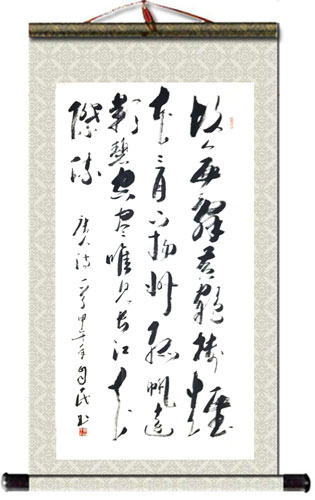 故人西辞黄鹤楼烟
花三月下扬州孤帆远
影碧空尽唯见长江天
际流
唐人诗一首甲年